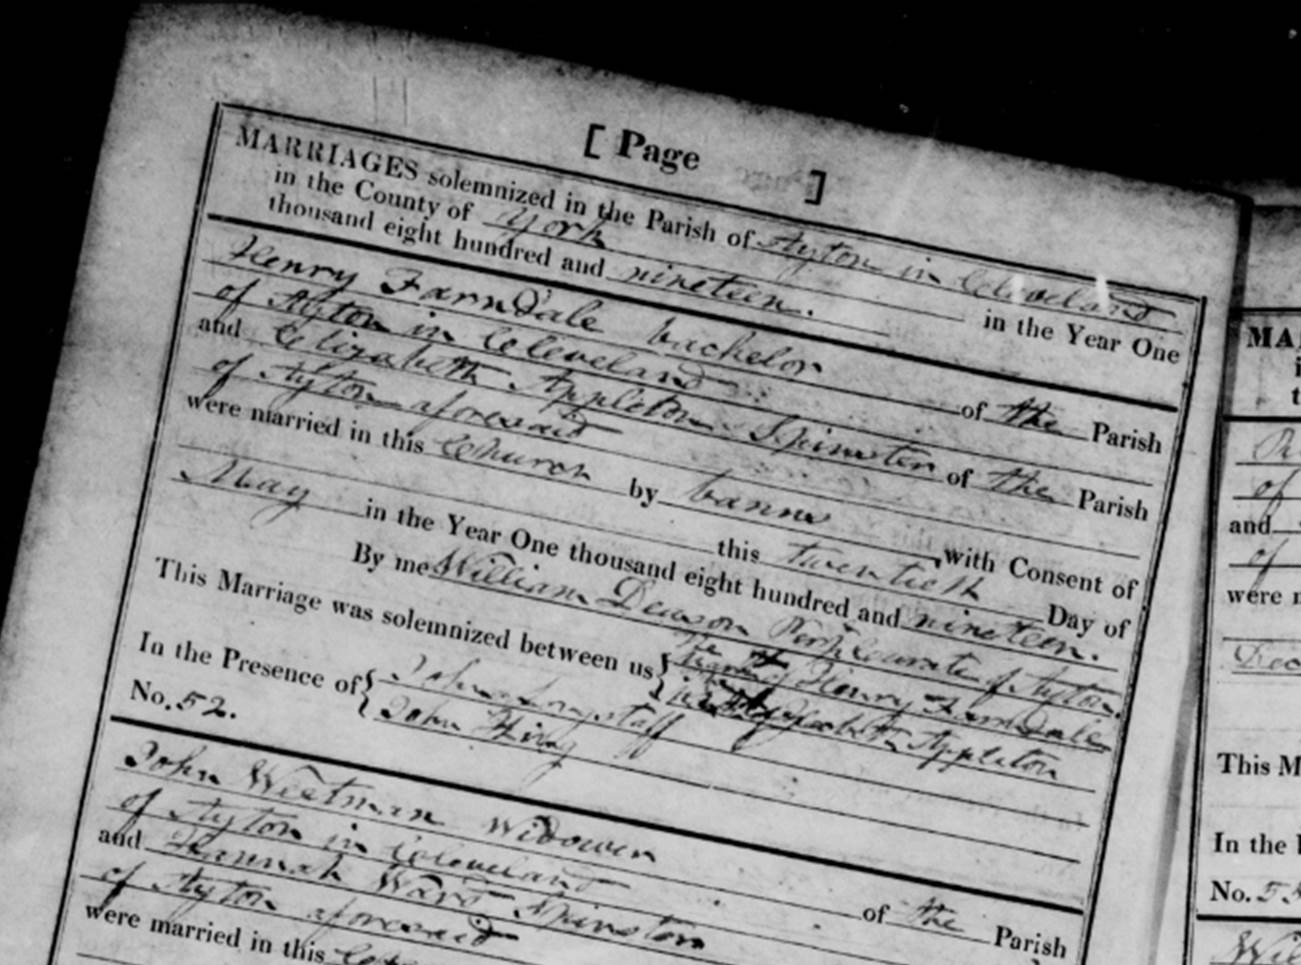 [ Page ]
MARRIAGES solemnized in the Parish of Ayton in Cleveland
in the County of York in the Year One
thousand eight hundred and nineteen.
Henry Farndale bachelor of the Parish
of Ayton in Cleveland
and Elizabeth Appleton Spinster of the Parish
of Ayton aforesaid
were married in this Church by banns with Consent of
this twentieth Day of
May in the Year One thousand eight hundred and nineteen.
By me William Deason Perpl Curate of Ayton.
This Marriage was solemnized between us { Henry Farndale
Elizabeth Appleton
In the Presence of { John Longstaff
John King
No. 52.
John Weetman Widower of the Parish
of Ayton in Cleveland
and Hannah Ward Spinster
of Ayton aforesaid
were married in this
MA
of
and
of
were
Dec
This M
In the
No. 5
Wil